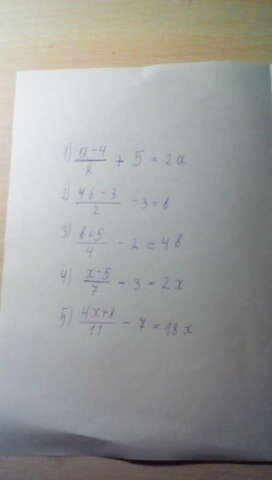 1) a-4/2 + 5 = 2a
2) 4b-3/2 - 3 = b
3) b+5/4 - 2 = 4b
4) x-5/7 - 3 = 2x
5) 4x+8/11 - 7 = 18x